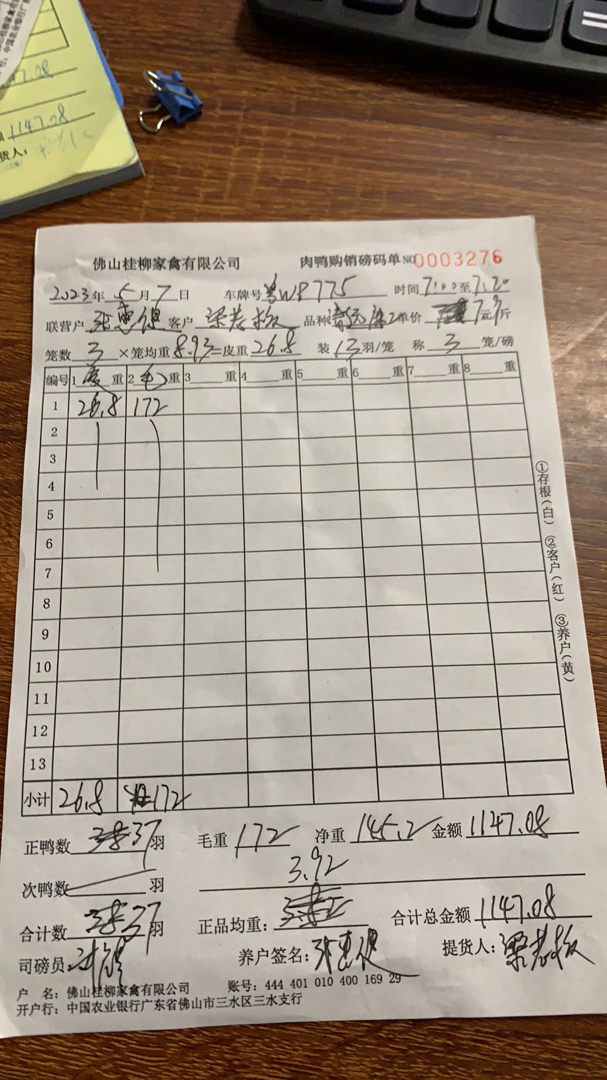 1147.08
佛山桂柳家禽有限公司 肉鸭购销磅码单 NO 0003276
2023年5月7日 车牌号 粤W8775 时间 7:00至7:20
联营户 张惠得 客户 梁老板 品种 单价 7.9元/斤
笼数 3 ×笼均重 8.93=皮重 26.8 装 13 羽/笼 称 3 笼/磅
编号 1皮重 2毛重 3重 4重 5重 6重 7重 8重
1 26.8 172
2
3
4
5
6
7
8
9
10
11
12
13
小计 26.8 172
①存根(白) ②客户(红) ③养户(黄)
正鸭数 37羽 毛重 172 净重 145.2 金额 1147.08
次鸭数 羽 3.92
合计数 37羽 正品均重: 合计总金额 1147.08
司磅员: 养户签名: 张惠得 提货人: 梁老板
户 名: 佛山桂柳家禽有限公司 账号: 444 401 010 400 169 29
开户行: 中国农业银行广东省佛山市三水区三水支行